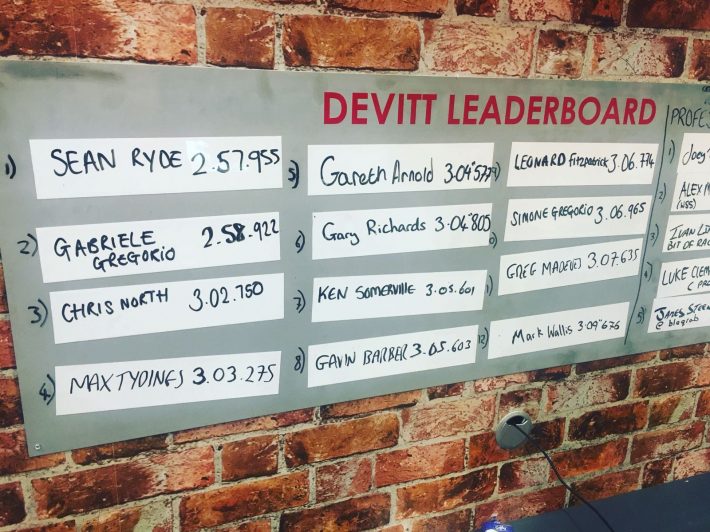 DEVITT LEADERBOARD
1) SEAN RYDE 2.57.955
2) GABRIELE GREGORIO 2.58.922
3) CHRIS NORTH 3.02.750
4) MAX TYDINGS 3.03.275
5) Gareth Arnold
6) Gary Richards 3.04"805
7) KEN SOMERVILLE 3.05.601
8) GAVIN BARBER 3.05.603
LEONARD Fitzpatrick 3.06.774
SIMONE GREGORIO 3.06.965
GREG 3.07.635
12) Mark Wallis 3.09"676
1)
2) ALEX
(WSS)
3)
BIT OF
4) LUKE
5) JAMES
@